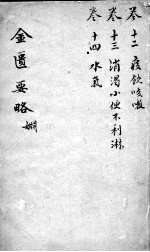 卷十二 痰飲咳嗽
卷十三 消渴小便不利淋
卷十四 水氣
金匱要略